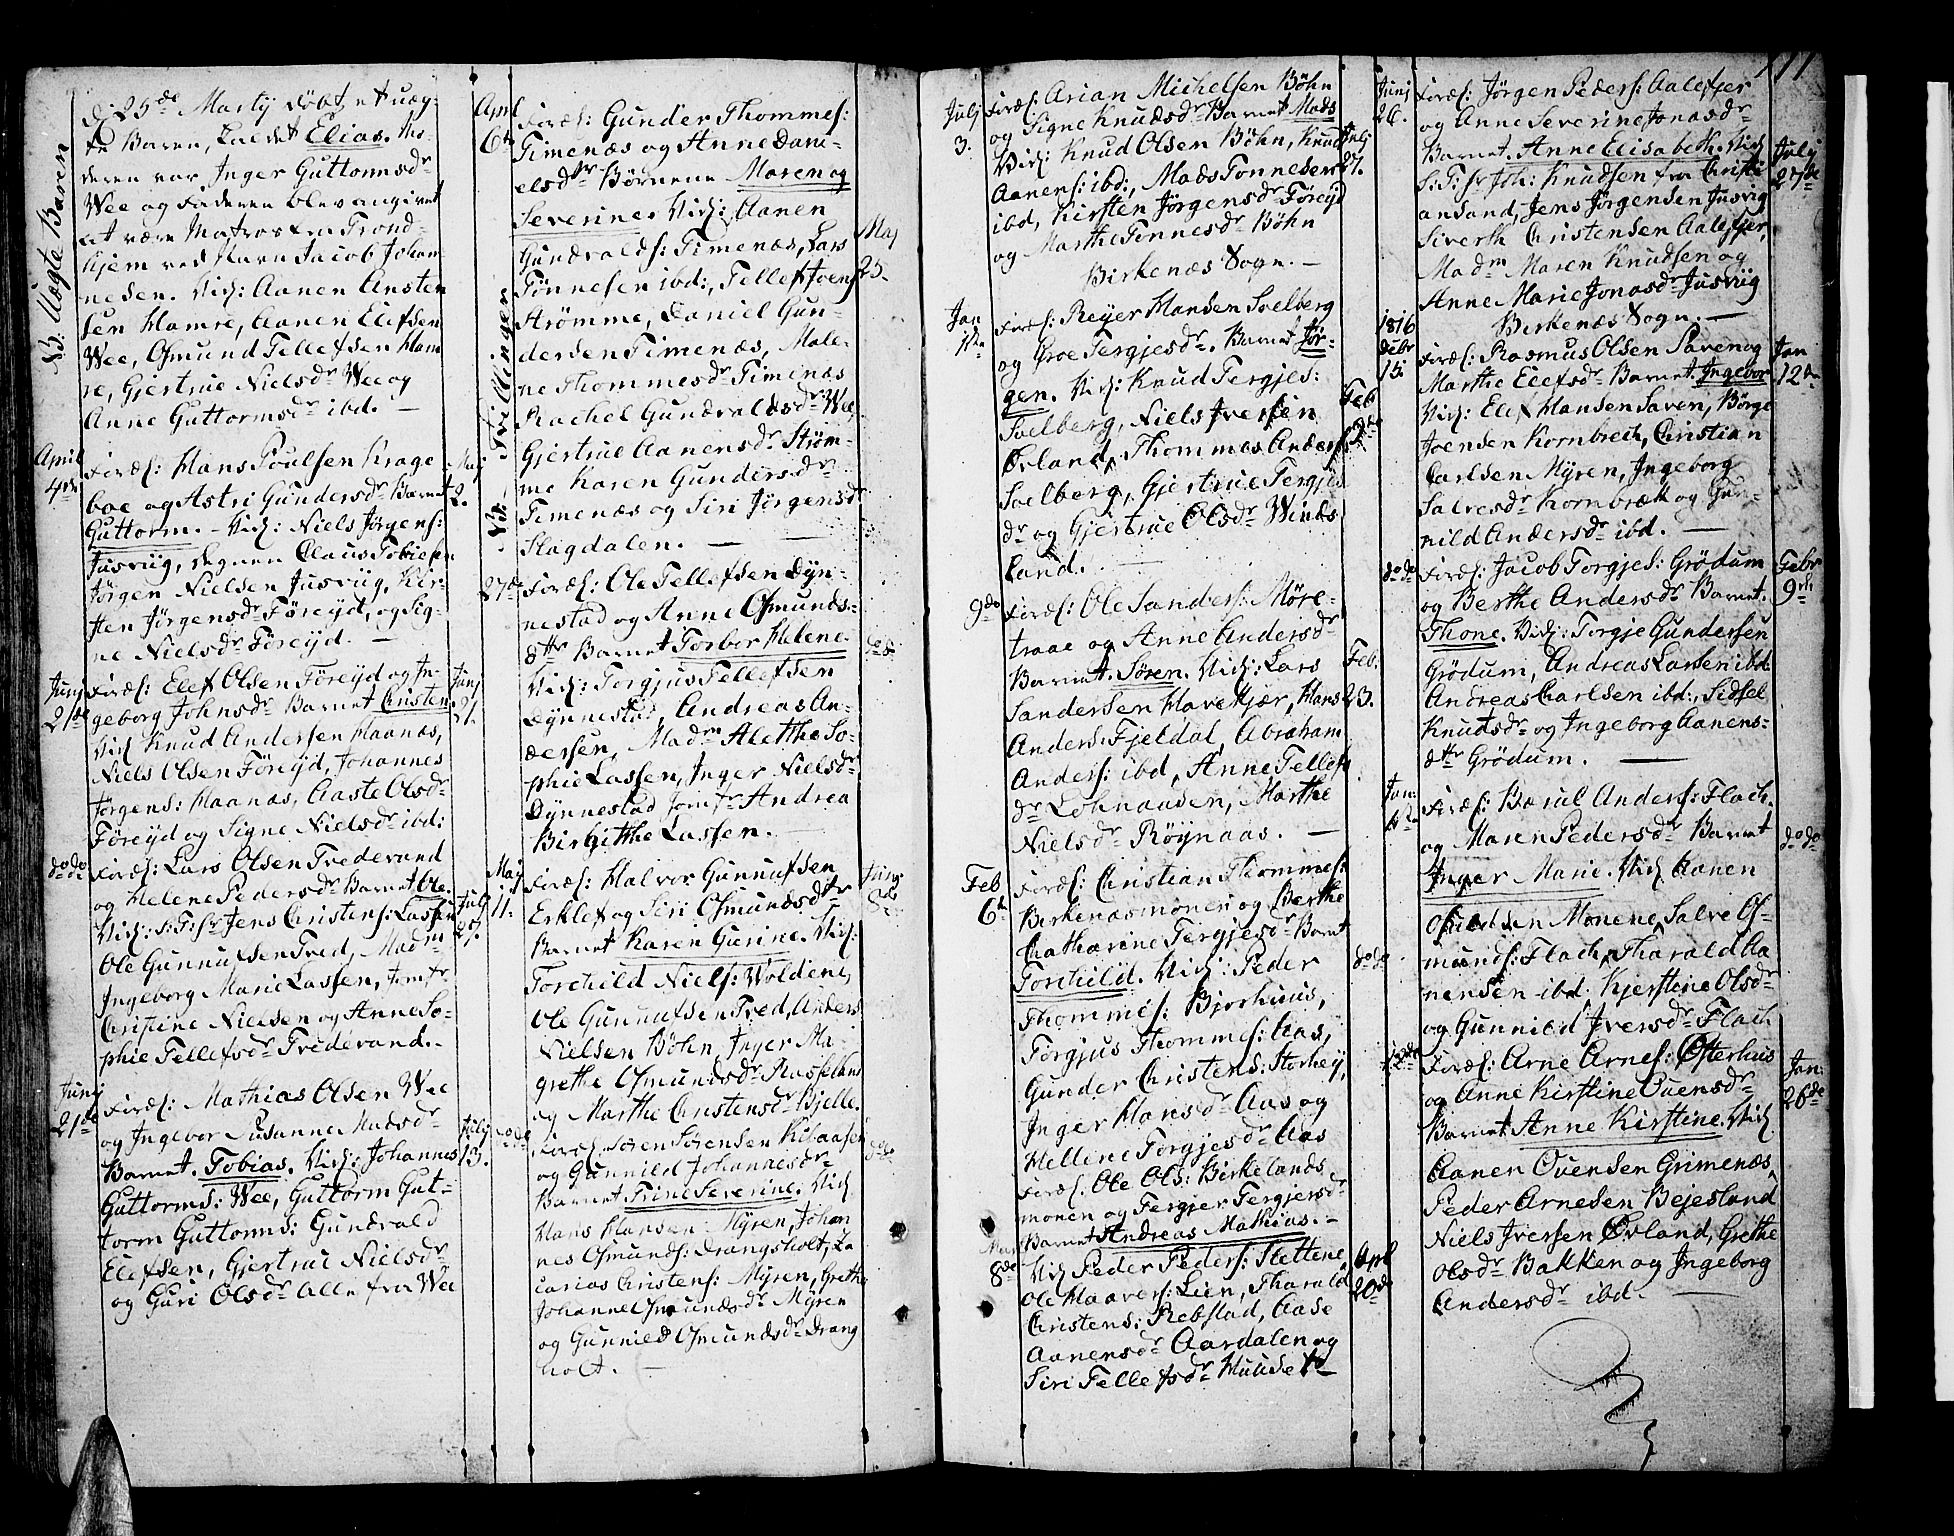 NB. Uægte Baren
d. 25de Martij döbt et uæg-
te Baren, kaldet Elias. Mo-
deren var Inger Guttormsdr
Wee og Faderen blev angivet
at være Matros fra Trond-
hjem ved Navn Jacob Johan
nesen. Vid: Aanen Ansten
sen Hamre, Aanen Elefsen
Wee, Osmund Tellefsen Ham
re, Gjertrue Nielsdr Wee og
Anne Guttormsdr ibd. —
April
4de
Foræl: Hans Poulsen Krage
boe og Astri Gundersdr Barnet
Guttorm. – Vid: Niels Jørgens:
Jusvug, degnen Claus Tobiesen
Jørgen Nielsen Jusvug, Kir-
sten Jörgensdr Föreyd, og Sig-
ne Nielsdr Föreyd. —
Maj
2.
Junj
21de
Foræl: Elef Olsen Föreyd og In-
geborg Johnsdr Barnet Christen.
Vid Knud Andersen Haanæs,
Niels Olsen Föreyd, Johannes
Jørgens: Haanæs, Aaste Olsdr
Föreyd og Signe Nielsdr ibd:
Junj
21.
do do
Foræl: Lars Olsen Trederand
og Helene Pedersdr Barnet Ole.
Vid: S:T: Hr Jens Christens: Lassen
Ole Gunnufsen Tred, Madm
Ingeborg Marie Lassen, Jomfr
Christine Nielsen og Anne So-
phie Tellefsdr Trederand. –
Julj
27.
Junj
21de
Foræl: Mathias Olsen Wee
og Ingebor Susanne Madsdr
Barnet. Tobias. Vid: Johannes
Guttorms: Wee, Guttorm Gut-
torm Guttorms: Gundvald
Elefsen, Gjertrue Nielsdr
og Guri Olsdr alle fra Wee
Julj
13.
April
6te
NB: Tvillinger
Foræl: Gunder Thommes:
Timenæs og Anne Dani-
elsdtr Børnene Maren og
Severine. Vid: Aanen
Gundvalds: Timenæs, Lars
Tönnesen ibd:, Tellef Joens
Strømme, Daniel Gun-
dersen Timenæs, Male-
ne Thommesdr Timenæs
Rachel Gundvaldsdr Wee,
Gjertrue Aanensdr Strøm-
me Karen Gundersdr
Timenæs og Siri Jörgensdr
Slagdalen. — —
Maj
25.
27de
Foræl: Ole Tellefsen Dyn-
nestad og Anne Osmunds-
dtr Barnet Torbor Helene.
Vid: Torgjus Tellefsen
Dynnestad, Andreas An-
dersen, Madm Alethe So-
phie Lassen, Inger Nielsdr
Dynnestad Jomfr Andrea
Birgitthe Lassen. —
do do
Maj
11.
Foræl: Halvor Gunnufsen
Erklef og Siri Osmundsdtr
Barnet Karen Gurine. Vid:
Torchild Niels: Woldene,
Ole Gunnufsen Tred, Anders
Nielsen Böhn, Inger Ma-
grethe Osmundsdr Russelans
og Marthe Christensdr Bjelle.
Junj
8de
do do
Foræl: Søren Sørensen Kibaasen
og Gunnild Johannesdr
Barnet Trine Severine. Vid
Hans Hansen Myren, Johan
nes Osmunds: Drangsholt, Za
carias Christens: Myren, Grethe
Johanne Osmundsdr Myren
og Gunnild Osmundsdr Drang
holt. —
do do
Julj
3.
Foræl: Arian Michelsen Böhn
og Signe Knudsdr Barnet Mads
Vid: Knud Olsen Böhn, Knud
Aanens: ibd:, Mads Tonnesen
ibd, Kirsten Jörgensdr Föreyd
og Marthe Tennesdr Böhn
Julj
27.
Birkenæs Sogn. —
Jan
1ste
Foræl: Reyer Hansen Svelberg
og Groe Tergjesdr. Barnet Jör-
gen. Vid: Knud Tergjes:
Svelberg, Niels Iversen
Ørland, Thommes Anders
Svelberg, Gjertrue Tergjes
dr og Gjertrue Olsdr Winds
land.
Feb
2de
9de
Foræl: Ole Sanders: Møre-
traae og Anne Andersdr
Barnet. Søren. Vid: Lars
Sandersen Havekjær, Hans
Anders: Fjeldal, Abraham
Anders: ibd, Anne Tellefs
dr Lohnaasen, Marthe
Nielsdr Röynaas. —
Feb.
23.
Feb
6te
Foræl: Christian Thommes:
Birkenæsmonen og Berthe
Chatharine Tergjesdr Barnet
Torchild. Vid: Peder
Thommes: Bjorhuus,
Torgjus Thommes: Aas,
Gunder Christens: Storhey,
Inger Hansdr Aas og
Hellene Torgjesdr Aas
do do
Mar
8de
Foræl. Ole Ols: Birkelands
monen og Tergjer Tergjersdr
Barnet Andreas Mathias. –
Vid Peder Peders: Slettene
Ole Haavors: Lien, Tharald
Christens: Rebstad, Aase
Aanensdr Aardalen og
Siri Tellefsdr Huuse
Aprl
20de
111
Junj
26.
Foræl: Jørgen Peders: Aalefjer
og Anne Severine Jonasdr
Barnet. Anne Elisabeth. Vid
S:T: Hr Joh: Knudsen fra Christi
ansand, Jens Jörgensen Jusvig
Siverth Christensen Aalefjer,
Madm Maren Knudsen og
Anne Marie Jonasdr Jusvug
Julj
27de
Birkenæs Sogn. —
1816
Debr
15
Foræl: Rasmus Olsen Saven og
Marthe Elefsdr Barnet. Ingebor
Vid: Elef Hansen Saven, Börge
Joensen Kornbrech, Christian
Carlsen Myren, Ingeborg
Salvesdr Kornbræk og Gun-
nild Andersdr ibd. —
Jan
12te
do do
Foræl: Jacob Torgjes: Grödum
og Berthe Andersdr Barnet.
Thone. Vid: Torgje Gundersen
Grödum, Andreas Larsen ibd
Andreas Carlsen ibd:, Sidsel
Knudsdr og Ingeborg Aanens-
dtr Grödum. —
Febr
9de
Jan:
Foræl: Barul Anders: Flach.
og Maren Pedersdr Barnet
Inger Marie. Vid Aanen
Osuldsen Monene, Salve Os-
munds: Flach, Tharald Aa
nensen ibd. Kjerstine Olsdr
og Gunnild Iversdr Flach
do do
12de
Foræl: Arne Arnes: Østerhus
og Anne Kirstine Ouensdr
Barnet Anne Kirstine. Vid
Aanen Ouensen Grimenæs,
Peder Arnesen Bejesland
Niels Iversen Ørland, Grethe
Olsdr Bakken og Ingeborg
Andersdr ibd. —
Jan:
26de